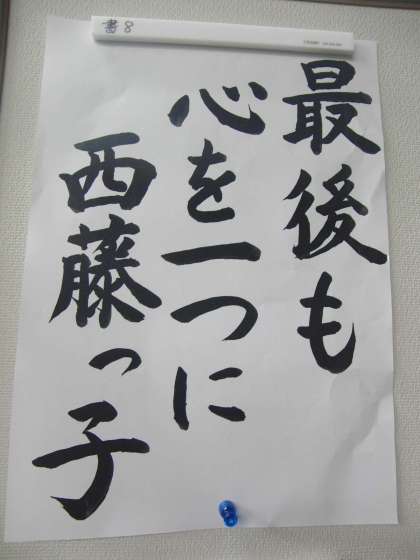 書8
最後も
心を一つに
西藤っ子